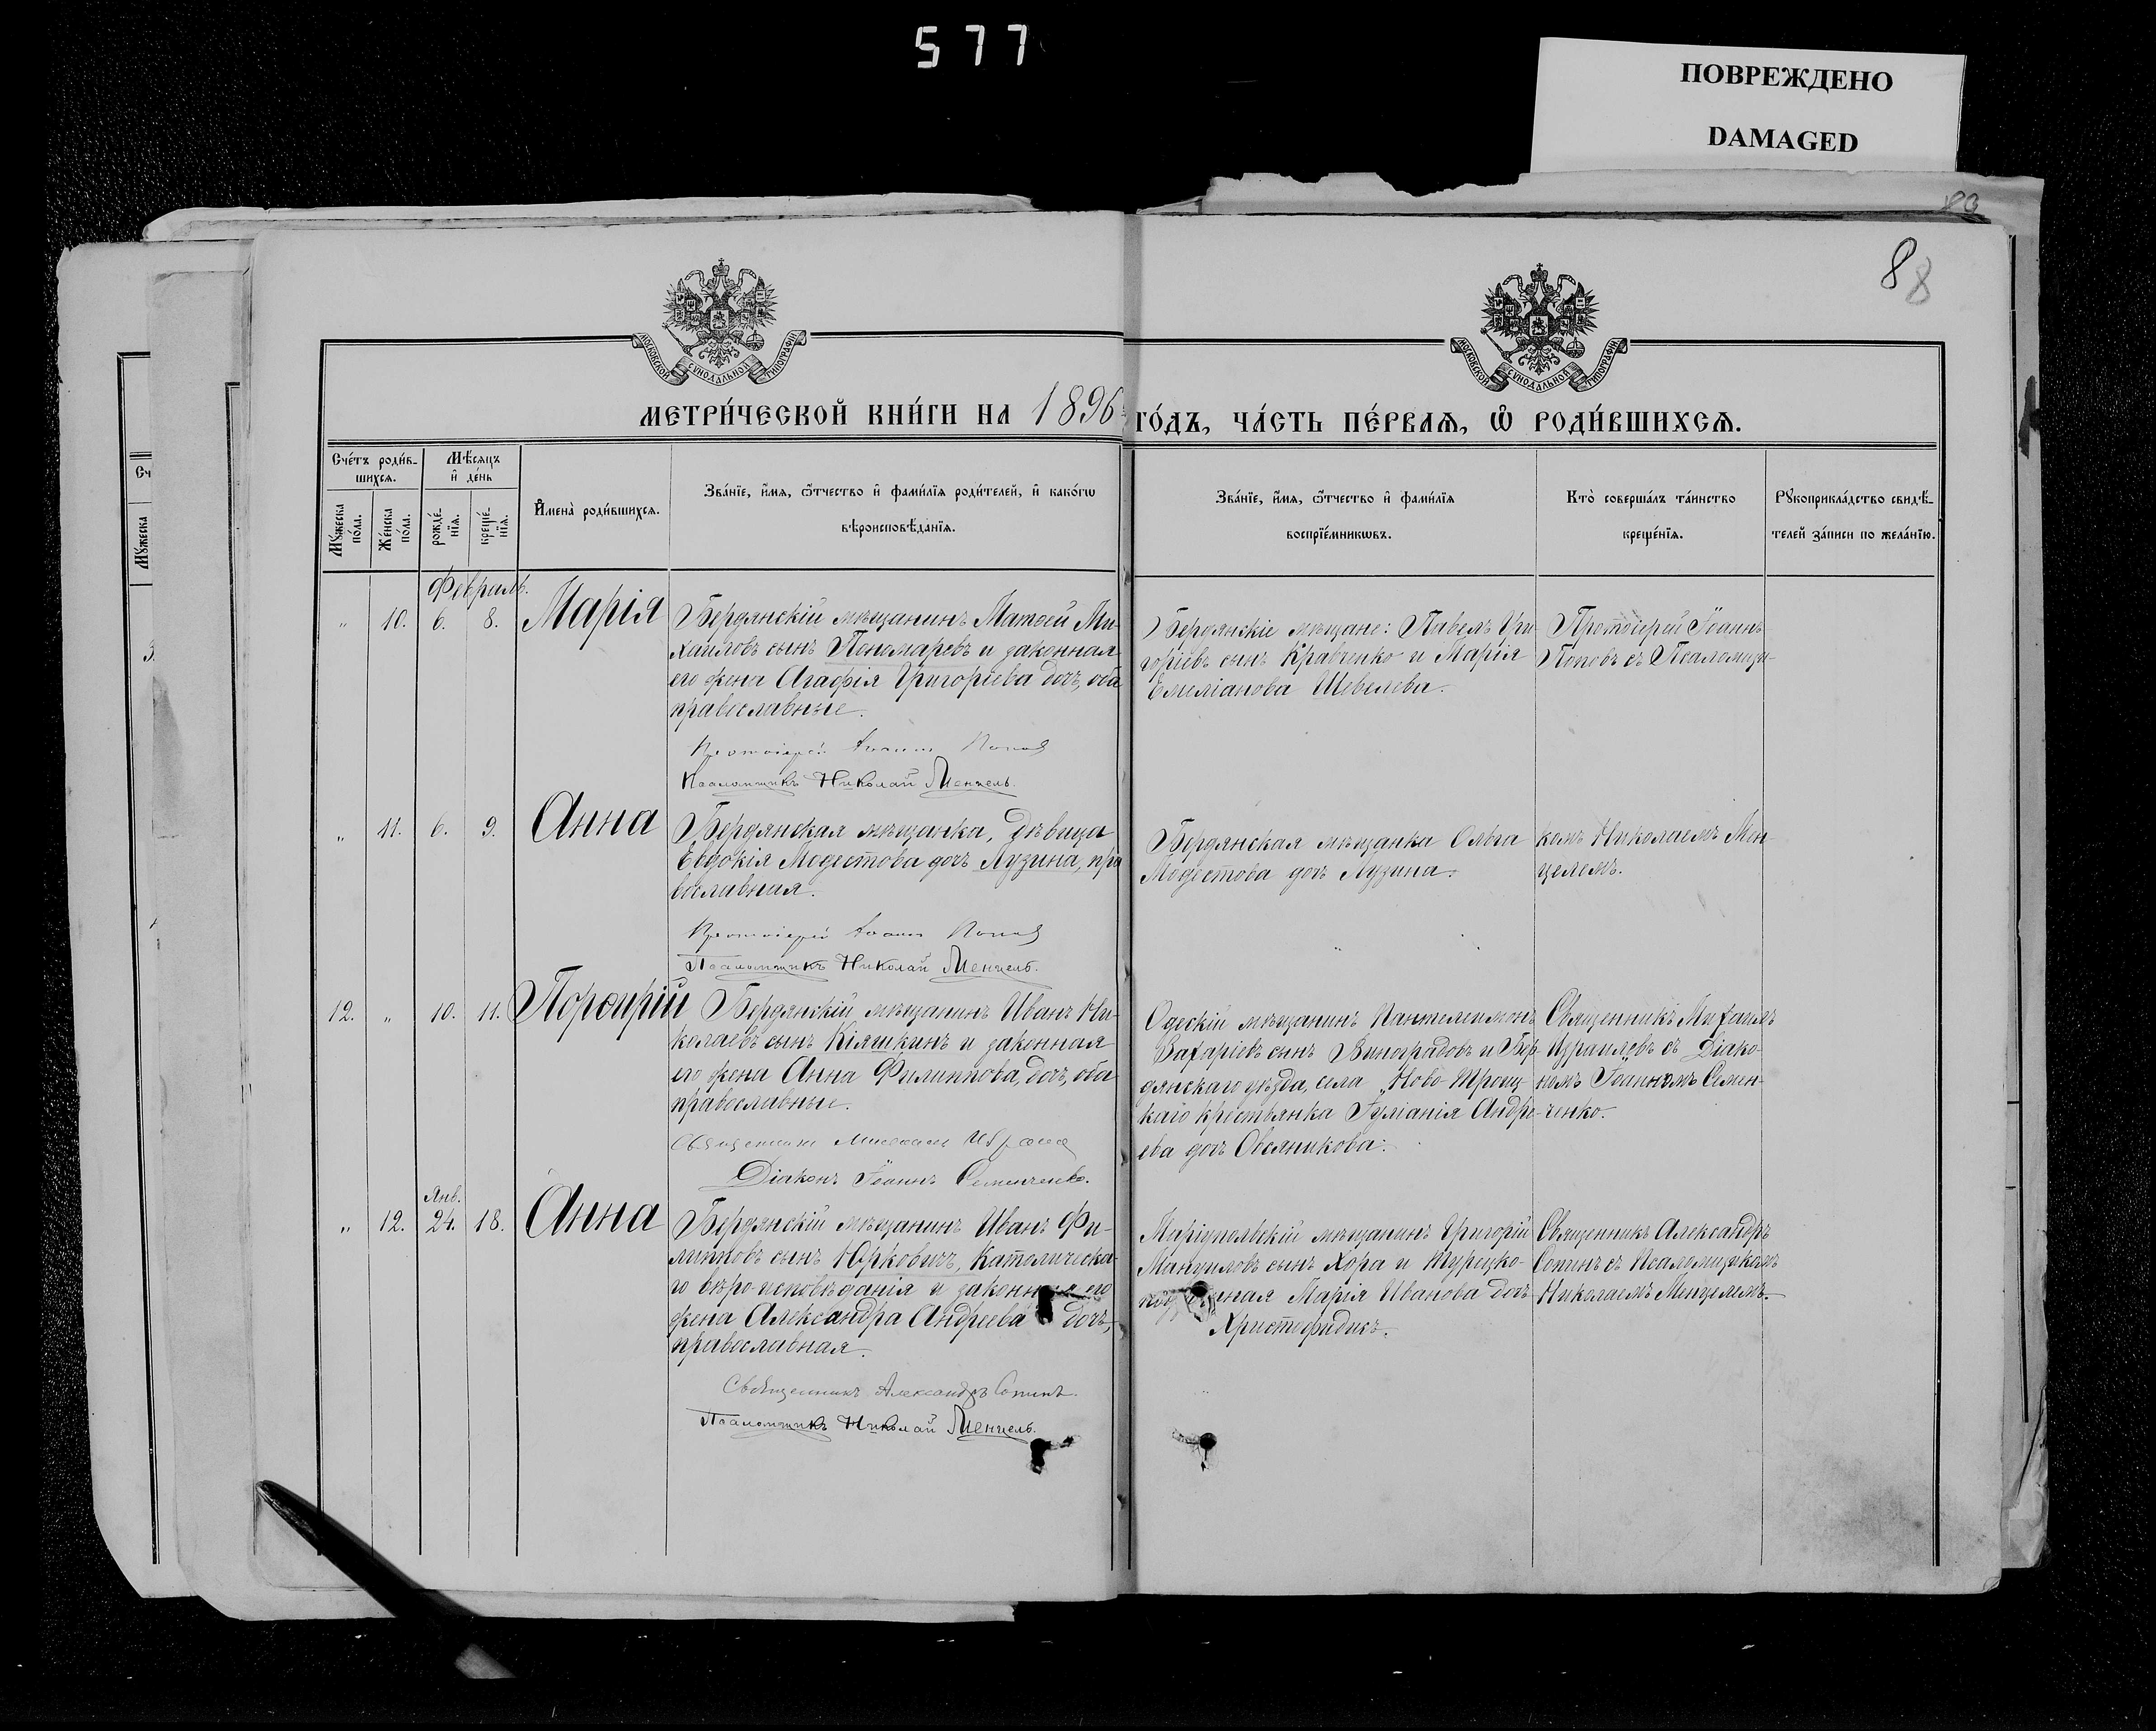 577
ПОВРЕЖДЕНО
DAMAGED
88
МОСКОВСКОЙ СѴНОДАЛЬНОЙ ТИПОГРАФІИ
МОСКОВСКОЙ СѴНОДАЛЬНОЙ ТИПОГРАФІИ
МЕТРИ́ЧЕСКОЙ КНИ́ГИ НА 1896 ГО́ДЪ, ЧА́СТЬ ПЕ́РВАѦ, Ѡ РОДИ́ВШИХСѦ.
Сче́тъ роди́в-
шихсѧ.
Мѣ́сѧцъ
и҆ де́нь
Мꙋ́жеска
по́ла.
Же́нска
по́ла.
рожде́-
нїѧ.
креще́-
нїѧ.
И҆мена̀ роди́вшихсѧ.
Зва́нїе, и҆́мѧ, ѻ҆́тчество и҆ фами́лїѧ роди́телей, и҆ како́гѡ
вѣроисповѣ́данїѧ.
Зва́нїе, и҆́мѧ, ѻ҆́тчество и҆ фами́лїѧ
воспрїе́мникѡвъ.
Кто̀ соверша́лъ та́инство
креще́нїѧ.
Рꙋкоприкла́дство свидѣ́-
телей за́писи по жела́нїю.
Февраль.
" 10. 6. 8. Марія
Бердянскій мѣщанинъ Матѳей Ми-
хаиловъ сынъ Пономаревъ и законная
его жена Агафія Григоріева дочь, оба
православные.
Протоіерей Іоаннъ Поповъ
Псаломщикъ Николай Менцель.
Бердянскіе мѣщане: Павелъ Гри-
горіевъ сынъ Кравченко и Марія
Емеліанова Шевелева.
Протоіерей Іоаннъ
Поповъ съ Псаломщи-
" 11. 6. 9. Анна
Бердянская мѣщанка, дѣвица
Евдокія Модестова дочь Лузина, пра
вославная.
Протоіерей Іоаннъ Поповъ
Псаломщикъ Николай Менцель.
Бердянская мѣщанка Ольга
Модестова дочь Лузина.
комъ Николаемъ Мен-
целемъ.
12. " 10. 11. Порѳирій
Бердянскій мѣщанинъ Иванъ Ни-
колаевъ сынъ Кіяшкинъ и законная
его жена Анна Филиппова, дочь, оба
православные.
Священникъ Михаилъ
Діаконъ Іоаннъ Семенченко.
Одескій мѣщанинъ Пантелеимонъ
Захаріевъ сынъ Виноградовъ и Бер-
дянскаго уѣзда, села "Ново Троиц-
каго крестьянка Іуліанія Андре-
ева дочь Овсяникова.
Священникъ Михаилъ
Израилевъ съ Діако-
номъ Іоанномъ Семен-
ченко.
Янв.
" 12. 24. 18. Анна
Бердянскій мѣщанинъ Иванъ Фи-
липповъ сынъ Юрковичъ, Католическа-
го вѣроисповѣданія и законная его
жена Александра Андреева дочь,
православная.
Священникъ Александръ Сопинъ.
Псаломщикъ Николай Менцель.
Маріупольскій мѣщанинъ Григорій
Мануиловъ сынъ Хора и Турецко-
Марія Иванова дочь
Христофидисъ.
Священникъ Александръ
Сопинъ съ Псаломщикомъ
Николаемъ Менцелемъ.